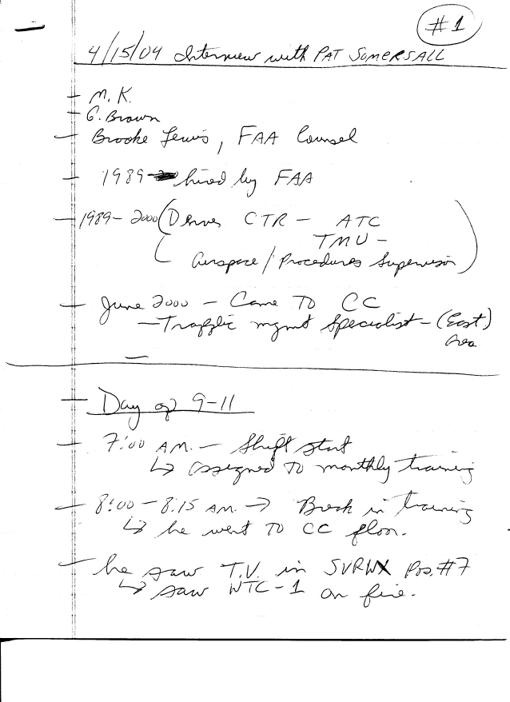 #1
4/15/04 Interview with PAT SOMERSALL
— M.K.
— G. Brown
— Brooke Lewis, FAA Counsel
— 1989 hired by FAA
— 1989-2000 (Denver CTR - ATC
TMU -
Airspace/Procedures Supervisor)
— June 2000 - Came TO CC
- Traffic mgmt Specialist - (East)
Area
— Day of 9-11
— 7:00 A.M. - Shift start
↳ assigned TO monthly training
— 8:00 - 8:15 A.M. → Break in training
↳ he went TO CC floor.
— he saw T.V. in SVRWX Pos. #7
↳ saw WTC-1 on fire.